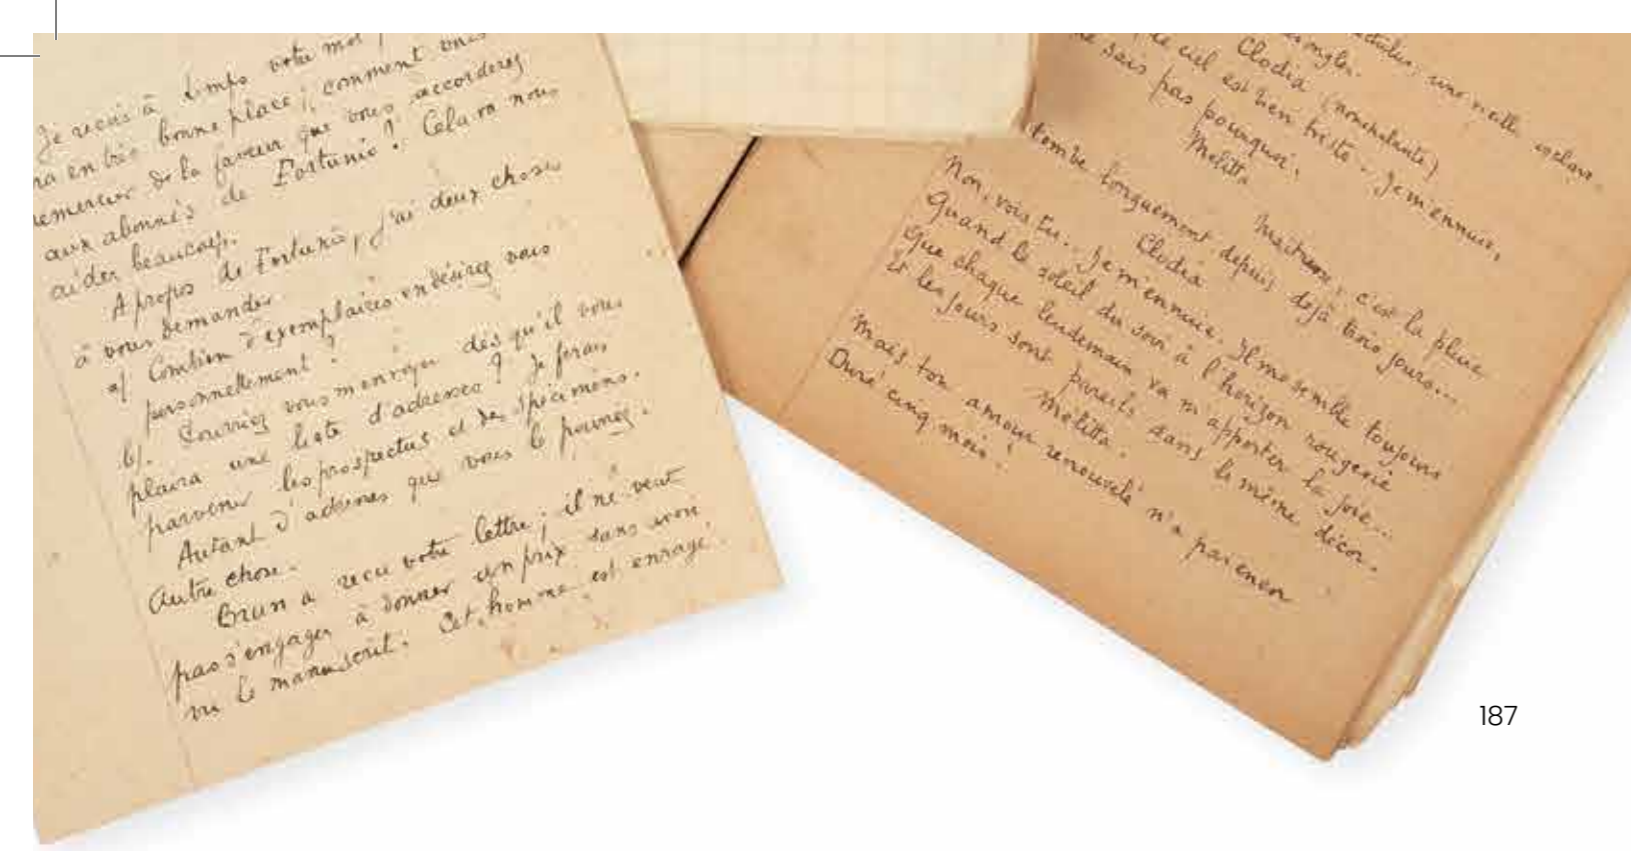 Je reçois à temps votre mot
ra en très bonne place ; comment vous
remercier de la faveur que vous accorderez
aux abonnés de Fortunio ? Cela va nous
aider beaucoup.
A propos de Fortunio, j'ai deux choses
à vous demander.
a/ Combien d'exemplaires en désirez vous
personnellement ?
b/. Pourriez vous m'envoyer dès qu'il vous
plaira une liste d'adresses ? Je ferais
parvenir les prospectus et des spécimens.
Autant d'adresses que vous le pourrez.
Autre chose.
Brun a reçu votre lettre ; il ne veut
pas s'engager à donner un prix sans avoir
vu le manuscrit. Cet homme est enragé.
une vieille esclave.
ongles.
Clodia (nonchalante)
le ciel est bien triste.. Je m'ennuie,
ne sais pas pourquoi.
Melitta
Maitresse, c'est la pluie
tombe longuement depuis dejà trois jours...
Clodia
Non, vois tu.. Je m'ennuie. Il me semble toujours
Quand le soleil du soir à l'horizon rougeoie
Que chaque lendemain va m'apporter la joie...
Et les jours sont pareils dans le même décor.
Melitta.
Mais ton amour renouvelé n'a pas encor
Duré cinq mois !
187